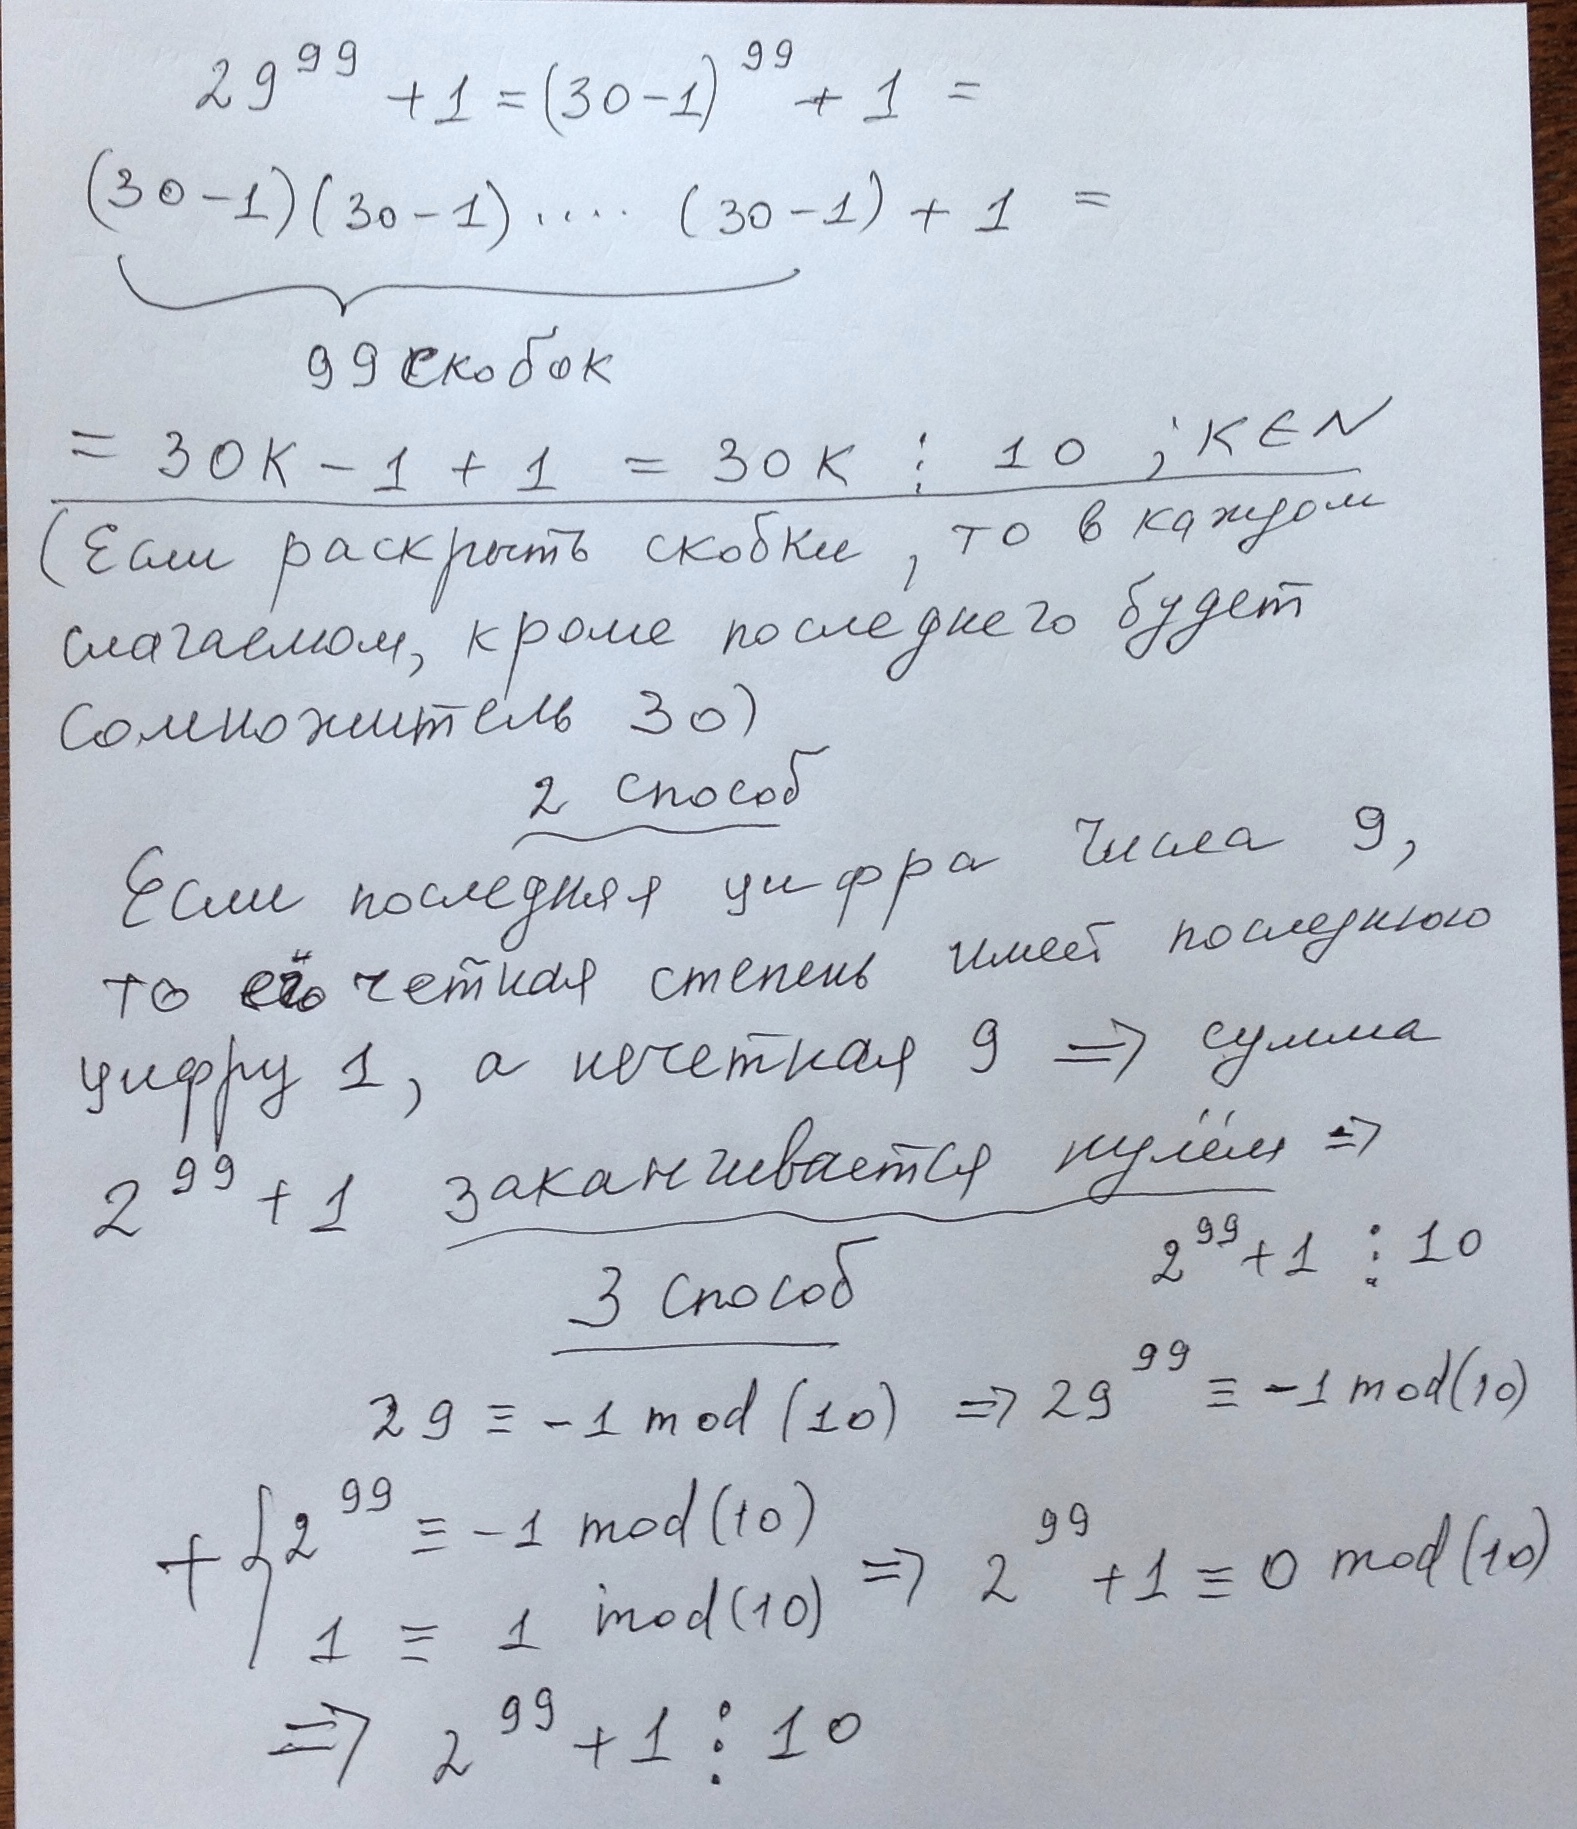 29^99 + 1 = (30-1)^99 + 1 =
(30-1)(30-1).... (30-1) + 1 =
99 скобок
= 30K - 1 + 1 = 30K ⋮ 10 ; K ∈ N
(Если раскрыть скобки, то в каждом
слагаемом, кроме последнего будет
сомножитель 30)
2 способ
Если последняя цифра числа 9,
то его четная степень имеет последнюю
цифру 1, а нечетная 9 => сумма
2^99 + 1 заканчивается нулём =>
2^99 + 1 ⋮ 10
3 способ
29 ≡ -1 mod (10) => 29^99 ≡ -1 mod(10)
+ { 2^99 ≡ -1 mod(10)
1 ≡ 1 mod(10) => 2^99 + 1 ≡ 0 mod(10)
=> 2^99 + 1 ⋮ 10